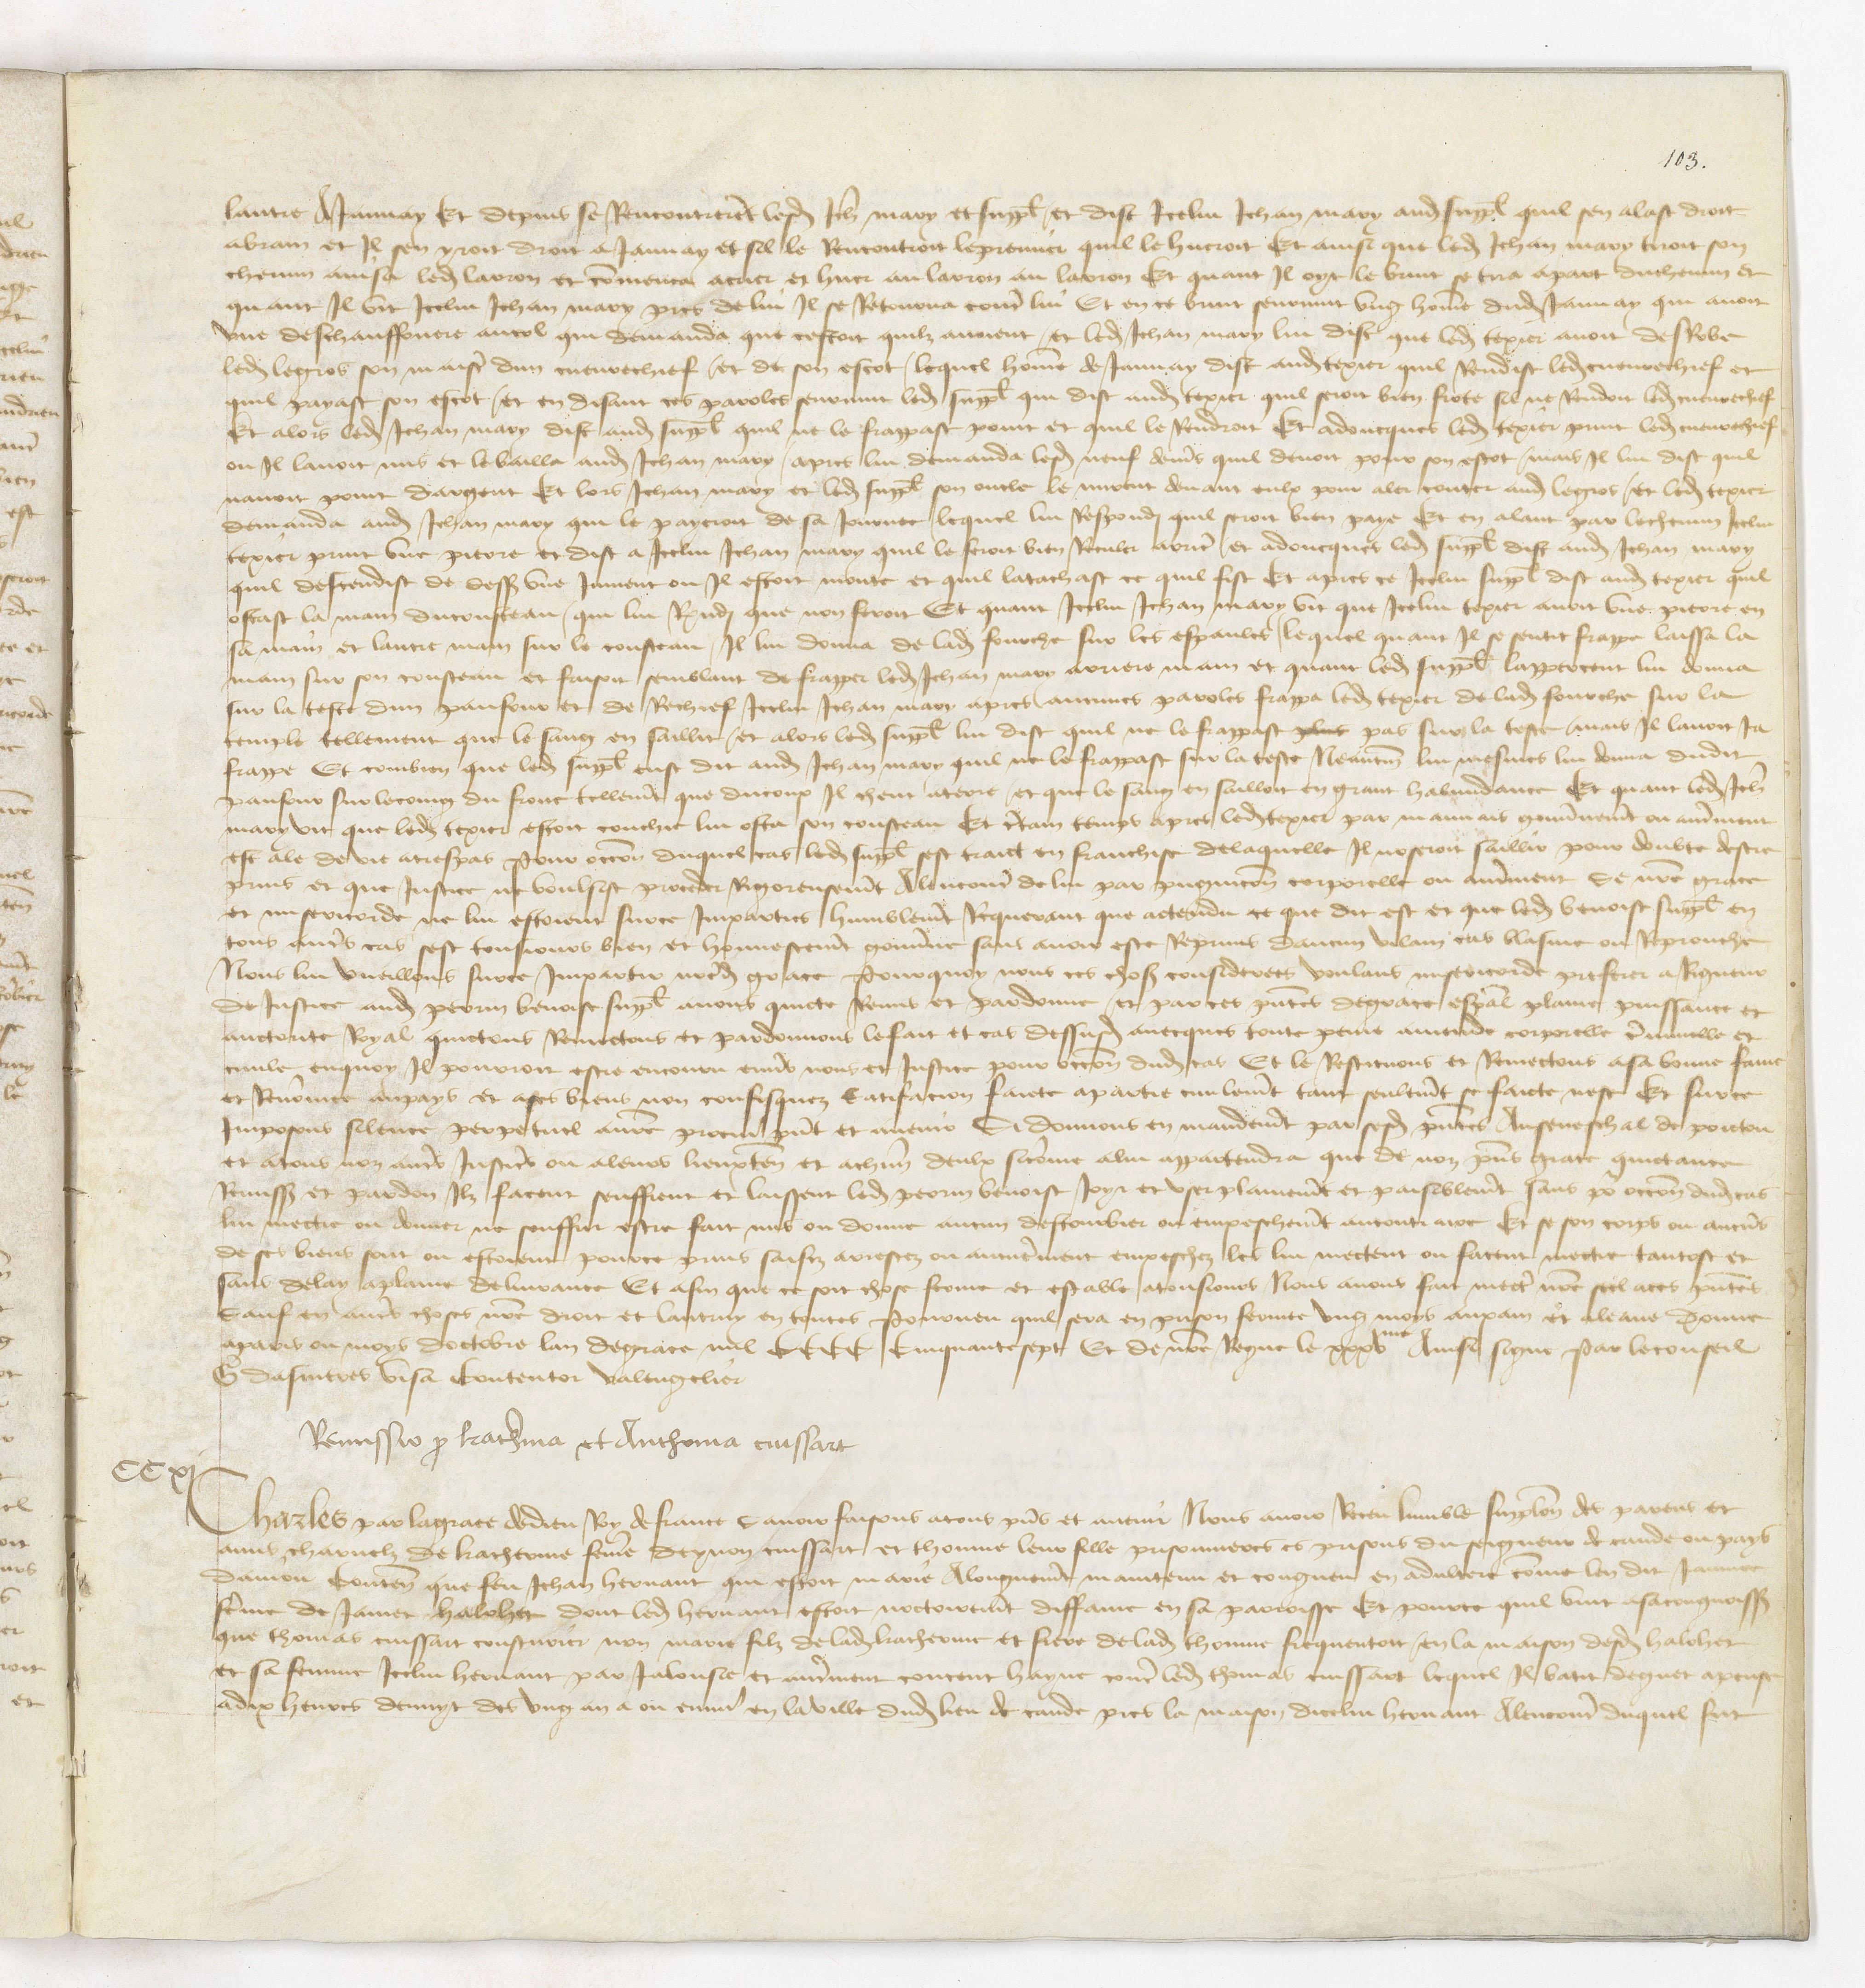 103.
lautre A Jaunay Et depuis se Rencontrerent lesd Jeh mary et suppl et dist Icelui Jehan mary aud suppl quil sen alast droit
abrain et Il sen yroit droit a Jaunay et sil le Rencontroit le premier quil le hucroit Et ainsi que led Jehan mary tiroit son
chemin avisa led larron et comenca acrier et huer au larron au larron Et quant Il oyt le bruit se tira apart du chemin et
quant Il vit Icelui Jehan mary pres de lui Il se Retourna contre lui Et en ce bruit seurvint ung home dud Jaunay qui avoit
une deschauffouere aucol qui demanda que cestoit quilz avoient et led Jehan mary lui dist que led texier avoit desRobe
led legros son maistre dun cueuvrechief et de son escot lequel home de Jaunay dist aud texier quil Rendist led cueuvrechief et
quil payast son escot et en disant ces paroles seurvint led suppl qui dist aud texier quil seroit bien frote sil ne Rendoit led cueuvrechief
Et alors led Jehan mary dist aud suppl quil ne le frappast point et quil le Rendroit Et adoncques led texier print led cueuvrechief
ou Il lavoit mis et le bailla aud Jehan mary apres lui demanda lesd neuf deniers quil devoit pour son escot mais Il lui dist quil
navoit point dargent Et lors Jehan mary et led suppl son oncle le mirent devant eulx pour aler conter aud legros et led texier
demanda aud Jehan mary qui le payeroit de sa Journee lequel lui Respondi quil seroit bien paye Et en alant par le chemin Icelui
texier print une pierre et dist a Icelui Jehan mary quil le feroit bien Reculer arriere et adoncques led suppl dist aud Jehan mary
quil descendist de dessus une Jument ou Il estoit monte et quil latachast ce quil fist Et apres ce Icelui suppl dist aud texier quil
ostast la main du cousteau qui lui Respondi que non feroit Et quant Icelui Jehan mary vit que Icelui texier avoit une pierre en
sa main et lautre main sur le cousteau Il lui donna de lad fourche sur les espaules lequel quant Il se sentit frappe laissa la
main sur son cousteau et faisoit semblant de frapper led Jehan mary arriere main et quant led suppl lapperceut lui donna
sur la teste dun paufour et de Rechief Icelui Jehan mary apres aucunes paroles frappa led texier de lad fourche sur la
temple tellement que le sang en saillit et alors led suppl lui dist quil ne le frappast plus pas sur la teste mais Il lavoit Ja
frappe Et combien que led suppl eust dit aud Jehan mary quil ne le frappast sur la teste Neantm lui mesmes lui donna dudit
paufour sur le coing du front tellement que du coup Il cheut aterre et que le sang en sailloit en grant habundance Et quant led Jeh
mary vit que led texier estoit couchie lui osta son cousteau Et certain temps apres led texier par mauvais gouvernement ou autrement
est ale de vie atrespas Pour occon duquel cas led suppl sest traict en franchise delaquelle Il noseroit saillir pour doubte destre
prins et que Justice ne voulsist proceder Rigoreusement Alencontre de lui par pugnicon corporelle ou autrement Se nre grace
et misericorde ne lui estoient surce Imparties humblement Requerant que actendu ce que dit est et que led benoist suppl en
tous autres cas sest tousiours bien et honnestement gouverne sans avoir este Reprins daucun vilain cas blasme ou Reprouche
Nous lui vueillons surce Impartir nred grace Pourquoy nous ces choses considerees voulans misericorde preferer a Rigueur
de Justice aud perrin benoist suppl avons quicte Remis et pardonne et par ces pntes degrace espal plaine puissance et
auctorite Royal quictons Remectons et pardonnons lefait et cas dessusd avecques toute peine amende corporelle criminelle et
civile enquoy Il pourroit estre encouru envers nous et Justice pour occon dud cas Et le Restituons et Remectons asa bonne fame
et Renomee aupays et ases biens non confisquez Satifacion faicte apartie civilement tant seulement se faicte nest Et surce
Imposons silence perpetuel anre procureur pnt et avenir Si donnons en mandement par cesd pntes Auseneschal de poictou
et atous noz autres Justiciers ou aleurs lieuxten et achun deulx sicome alui appartendra que de noz pns grace quictance
Remission et pardon Ilz facent seuffrent et laissent led perrin benoist Joyr et user plainement et paisiblement sans pour occon dud cas
lui mectre ou donner ne souffrir estre fait mis ou donne aucun destourbier ou empeschement aucontraire Et se son corps ou aucuns
de ses biens sont ou estoient pource prins saisiz arrestez ou autrement empeschez les lui mectent ou facent mectre tantost et
sans delay aplaine delivrance Et afin que ce soit chose ferme et estable atousiours Nous avons fait mectre nre seel aces pntes
Sauf en autres choses nre droit et lautruy en toutes Pourveu quil sera en prison fermee ung moys aupain et aleaue Donne
aparis ou moys doctobre lan degrace mil CCCC Cinquantesept Et de nre Regne le xxxvme Ainsi signe Par le conseil
visa Contentor valengelier
Remissio p katherina et Anthonia cuissart
CCxi
Charles par lagrace dedieu Roy de france Savoir faisons atous pns et avenir Nous avoir Receu lumble supplicon des parens et
amis charnelz de katherine femme deynon cuissart et thomine leur fille prisonnieres es prisons du seigneur de cande ou pays
danjou Conten que feu Jehan hernaut qui estoit marie Alonguement maintenu et congneu en adultere come len dit Jannee
feme de Jamet halobet dont led hernaut estoit notoirement diffame en sa parroisse Et pource quil vint asacongnoissance
que thomas cuissart cousturier non marie filz de lad katherine et frere de lad thomine frequentoit en la maison desd halobet
et sa femme Icelui hernaut par Jalousie et autrement conceut hayne contre led thomas cuissart lequel Il batit deguet apense
adix heures denuyt des ung an a ou environ en laville dud lieu de cande pres la maison dicelui hernaut Alencontre duquel fut